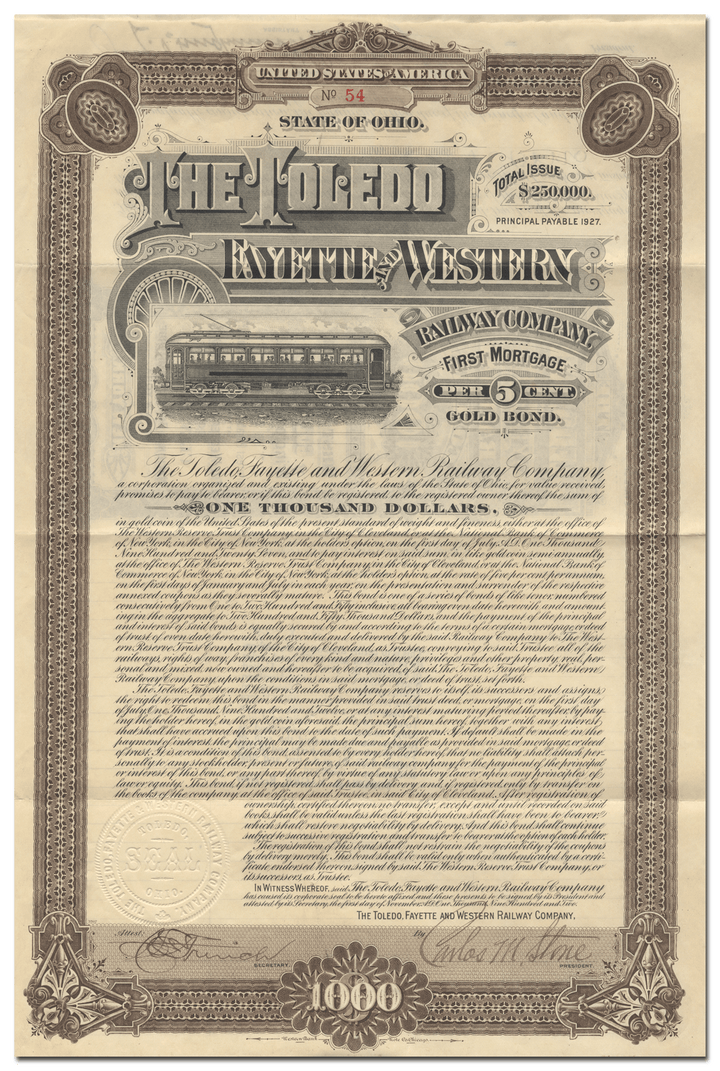 UNITED STATES OF AMERICA
No 54
STATE OF OHIO.
THE TOLEDO
TOTAL ISSUE
$250,000.
PRINCIPAL PAYABLE 1927.
FAYETTE AND WESTERN
RAILWAY COMPANY.
FIRST MORTGAGE
PER 5 CENT
GOLD BOND.
The Toledo, Fayette and Western Railway Company,
a corporation organized and existing under the laws of the State of Ohio, for value received,
promises to pay to bearer, or if this bond be registered, to the registered owner thereof, the sum of
ONE THOUSAND DOLLARS,
in gold coin of the United States of the present standard of weight and fineness, either at the office of
The Western Reserve Trust Company, in the City of Cleveland, or at the National Bank of Commerce
of New York, in the City of New York, at the holder's option, on the first day of July, A.D. One Thousand
Nine Hundred and Twenty Seven, and to pay interest on said sum, in the gold coin, semi-annually,
at the office of The Western Reserve Trust Company in the City of Cleveland, or at the National Bank of
Commerce of New York, in the City of New York, at the holder's option, at the rate of five per cent per annum,
on the first days of January and July in each year, on the presentation and surrender of the respective
annexed coupons as they severally mature. This bond is one of a series of bonds of like tenor, numbered
consecutively from One to Two Hundred and Fifty inclusive, all bearing even date herewith and amount-
ing in the aggregate to Two Hundred and Fifty Thousand Dollars, and the payment of the principal
and interest of said bonds is equally secured by and according to the terms of a certain mortgage, or deed
of trust of even date herewith, duly executed and delivered by the said Railway Company to The West-
ern Reserve Trust Company, of the City of Cleveland, as Trustee, conveying to said Trustee all of the
railways, rights of way, franchises of every kind and nature, privileges and other property, real, per-
sonal and mixed, now owned and hereafter to be acquired, of said, The Toledo, Fayette and Western
Railway Company, upon the conditions in said mortgage, or deed of trust, set forth.
The Toledo, Fayette and Western Railway Company reserves to itself, its successors and assigns,
the right to redeem this bond in the manner provided in said trust deed, or mortgage, on the first day
of July, One Thousand, Nine Hundred and Twelve, or at any interest maturing period thereafter, by pay-
ing the holder hereof, in the gold coin aforesaid, the principal sum hereof, together with any interest,
that shall have accrued upon this bond to the date of such payment. If default shall be made in the
payment of interest, the principal may be made due and payable as provided in said mortgage, or deed
of trust. It is a condition of this bond, assented to by every holder thereof, that no liability shall attach per-
sonally to any stockholder, present or future, of said railway company for the payment of the principal
or interest of this bond, or any part thereof, by virtue of any statutory law or upon any principles of
law or equity. This bond, if not registered, shall pass by delivery and, if registered, only by transfer on
the books of the company, at the office of said Trustee, in said City of Cleveland. After registration of
ownership, certified thereon, no transfer, except and until recorded on said
books shall be valid unless the last registration shall have been to bearer,
which shall restore negotiability by delivery. And this bond shall continue
subject to successive registration and transfer to bearer at the option of each holder.
The registration of this bond shall not restrain the negotiability of the coupons
by delivery merely. This bond shall be valid only when authenticated by a certi-
ficate endorsed hereon, signed by said, The Western Reserve Trust Company, or
its successors, as Trustee.
IN WITNESS WHEREOF, said The Toledo, Fayette and Western Railway Company
has caused its corporate seal to be hereto affixed and these presents to be signed by its President and
attested by its Secretary, the first day of November, A.D. One Thousand, Nine Hundred and Two.
THE TOLEDO, FAYETTE AND WESTERN RAILWAY COMPANY.
THE TOLEDO, FAYETTE AND WESTERN RAILWAY COMPANY
TOLEDO,
SEAL
OHIO.
Attest:
SECRETARY.
By
Carlos M. Stone
PRESIDENT
1000